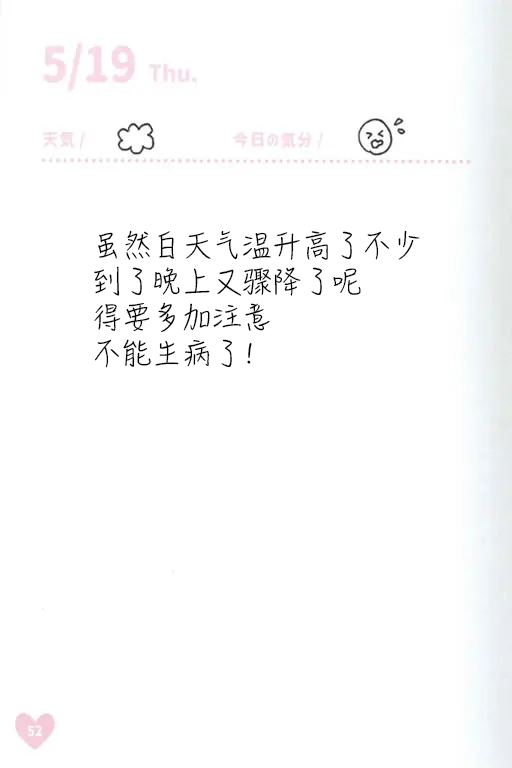 5/19 Thu.
天気 / 今日の気分 /
虽然白天气温升高了不少
到了晚上又骤降了呢
得要多加注意
不能生病了!
52